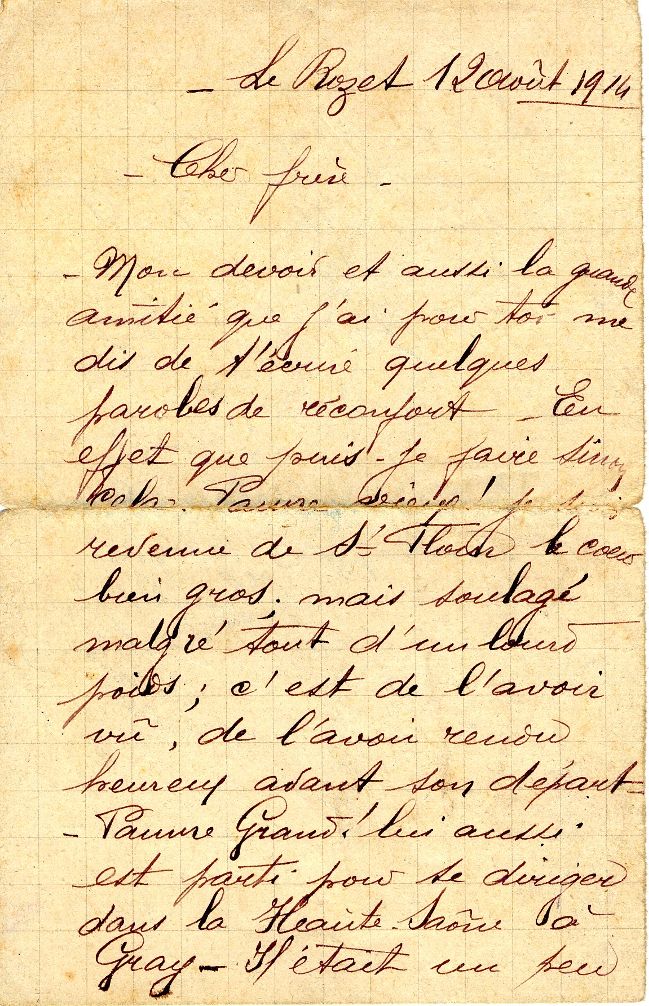 - Le Rozet 12 août 1914
- Cher frère -
- Mon devoir et aussi la grande
amitié que j'ai pour toi me
dis de t'écrire quelques
paroles de réconfort - En
effet que puis-je faire sinon
cela. Pauvre vieux! je suis
revenue de St Flour le coeur
bien gros, mais soulagé
malgré tout d'un lourd
poids; c'est de l'avoir
vu, de l'avoir rendu
heureux avant son départ -
- Pauvre Grand! lui aussi
est parti pour se diriger
dans la Haute-Saône à
Gray - Il était un peu